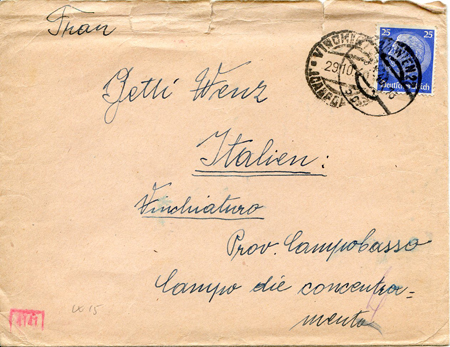 Fran
Jetti Wenz
Italien:
Vinchiaturo
Prov. Campobasso
Campo die concentra=
mento
25 25
Deutsches Reich
29.10